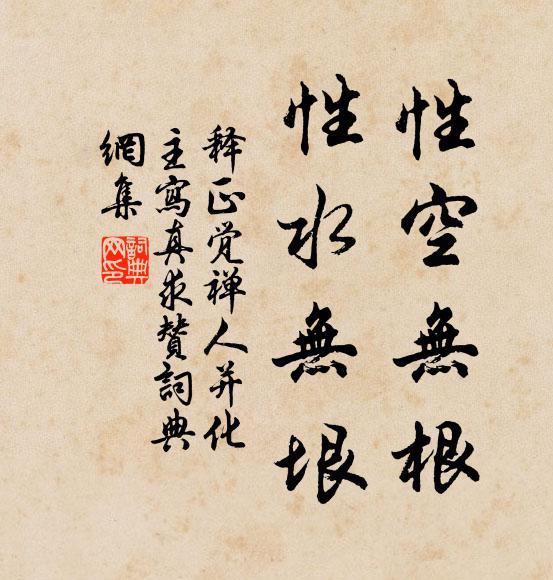 性空無根
性水無垠
释正觉禅人并化
主寫真求贊詞典
網集
詞典網印